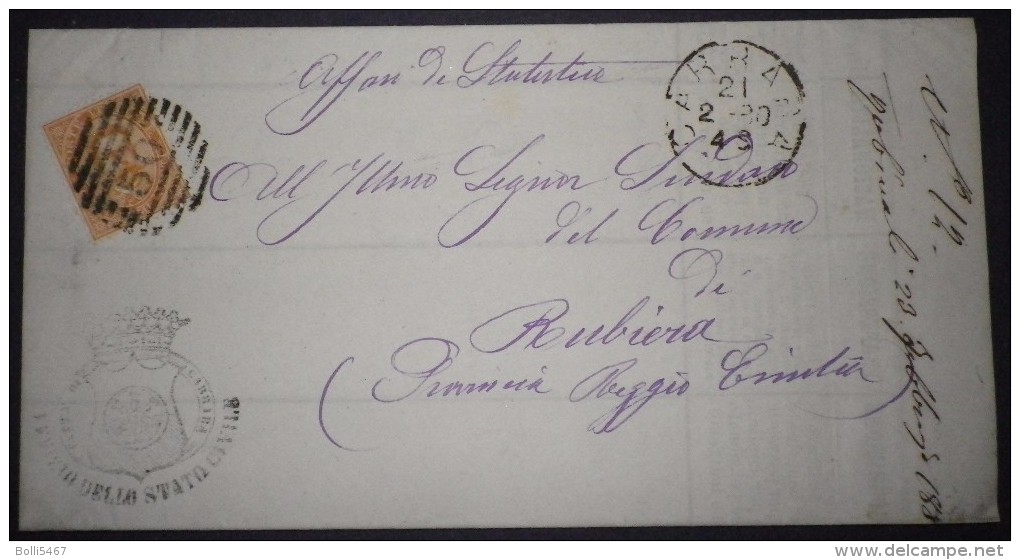 Affari di Statistica
CARRARA
21
2-80
4 S
All' Illmo Signor Sindaco
del Comune
di
Rubiera
(Provincia Reggio Emilia
UFFIZIO DELLO STATO CIVILE
Bolli5467
www.delcampe.net